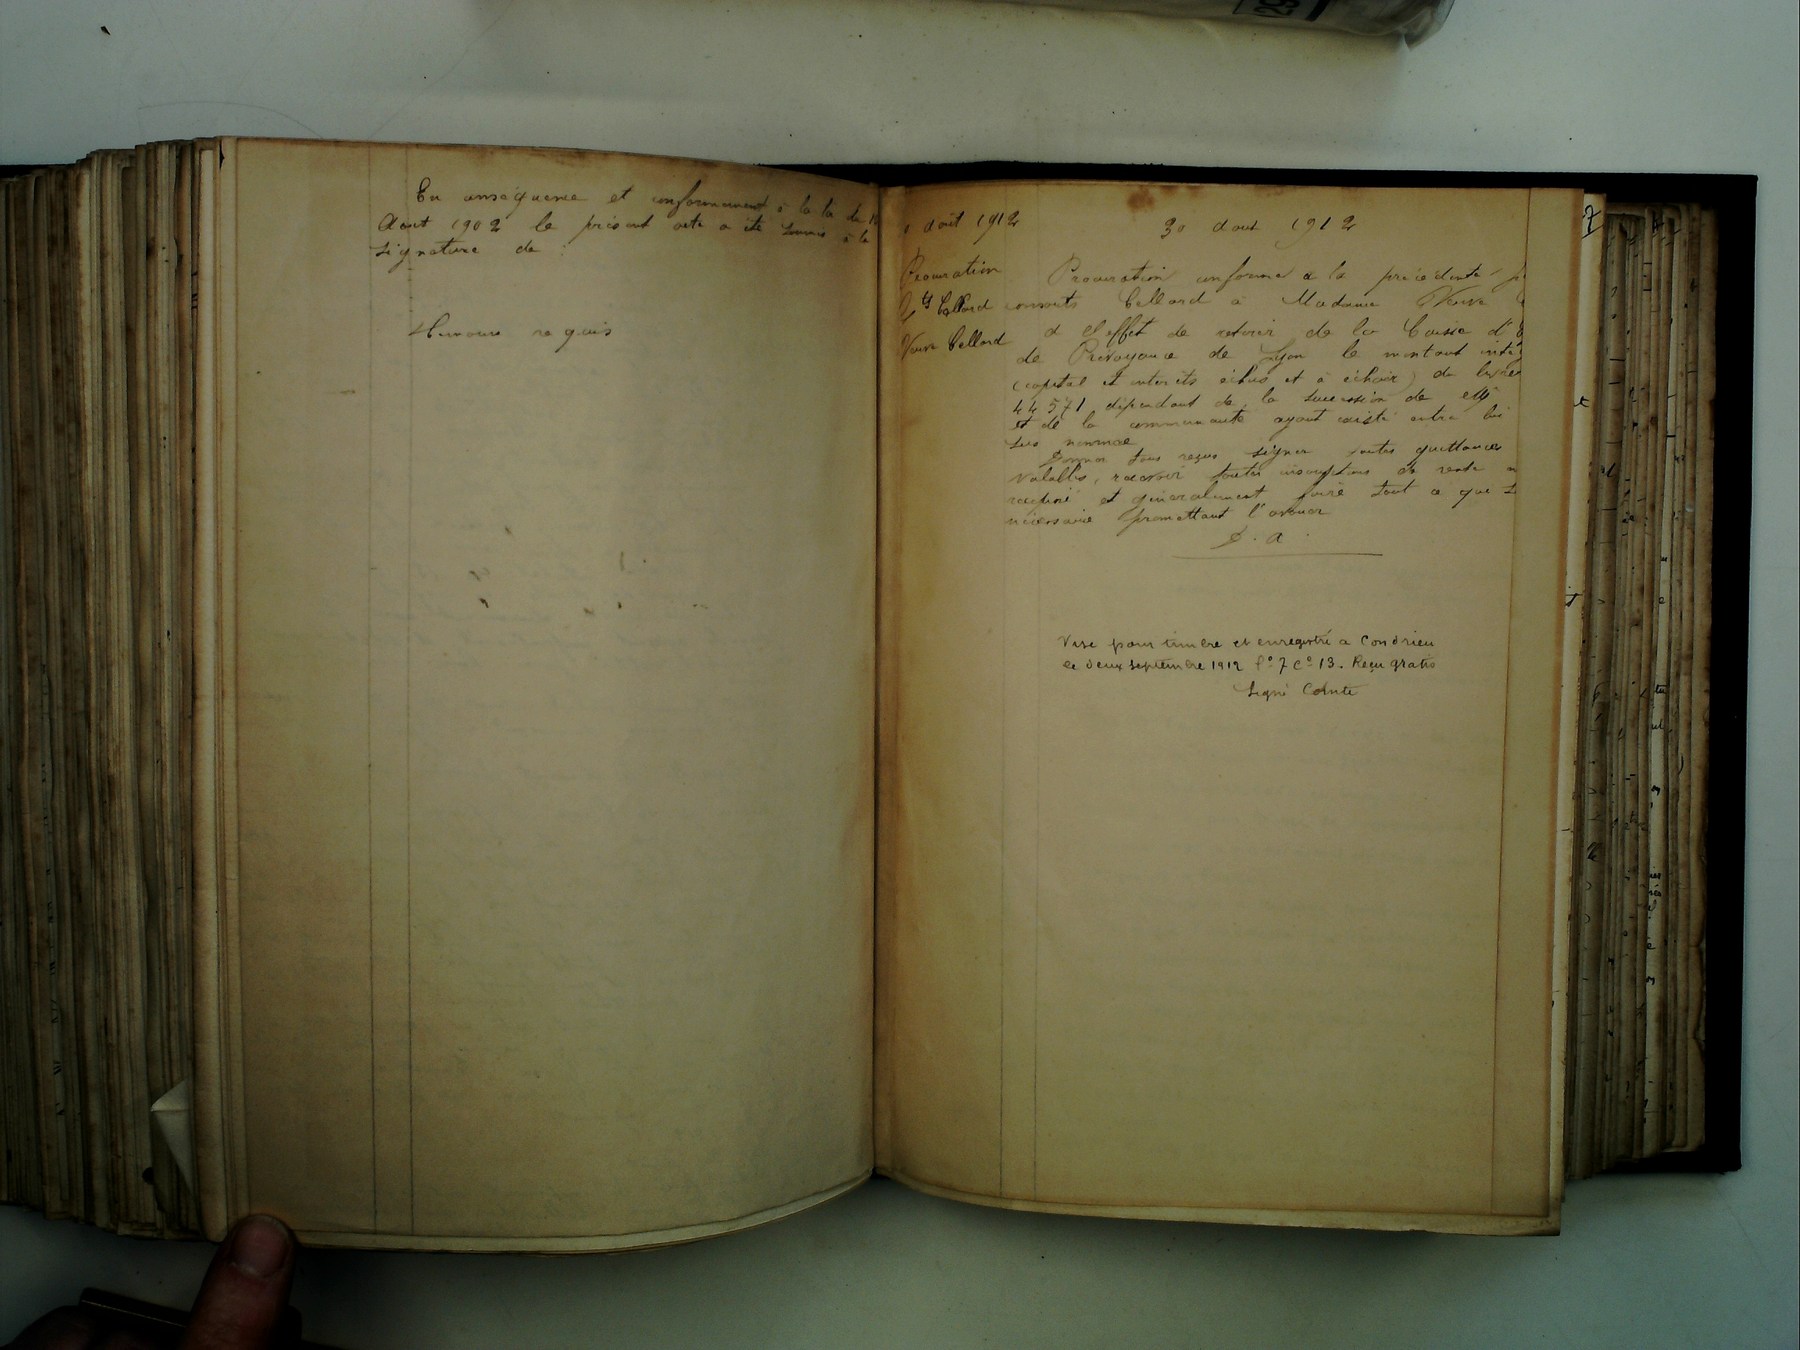 En conséquence et conformément à la loi de 12
Août 1902 le présent acte a été soumis à la
signature de :
Honoraires requis
août 1912
30 aout 1912
Procuration
Cellard
Veuve Cellard
Procuration conforme à la précédente p
consorts Cellard à Madame Veuve
à l'effet de retirer de la Caisse d'E
de Prévoyance de Lyon le montant inté
(capital et intérêts échus et à échoir) du livret
44571 dépendant de la succession de
et de la communauté ayant existé entre lui
sus nommée
Donner tous reçus signer toutes quittances
valables, recevoir toutes inscriptions de rente
et généralement faire tout ce que s
nécessaire promettant l'avouer
D. A.
Visé pour timbre et enregistré à Condrieu
le deux septembre 1912 fo 7 Co 13. Reçu gratis
Signé Comte